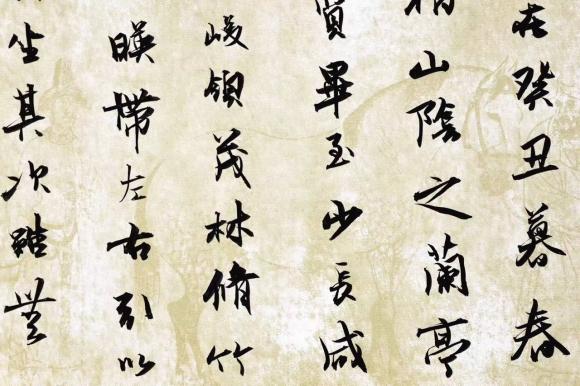 在癸丑暮春
山陰之蘭亭
賢畢至少長咸
峻領茂林脩竹
暎帶左右引以
坐其次雖無